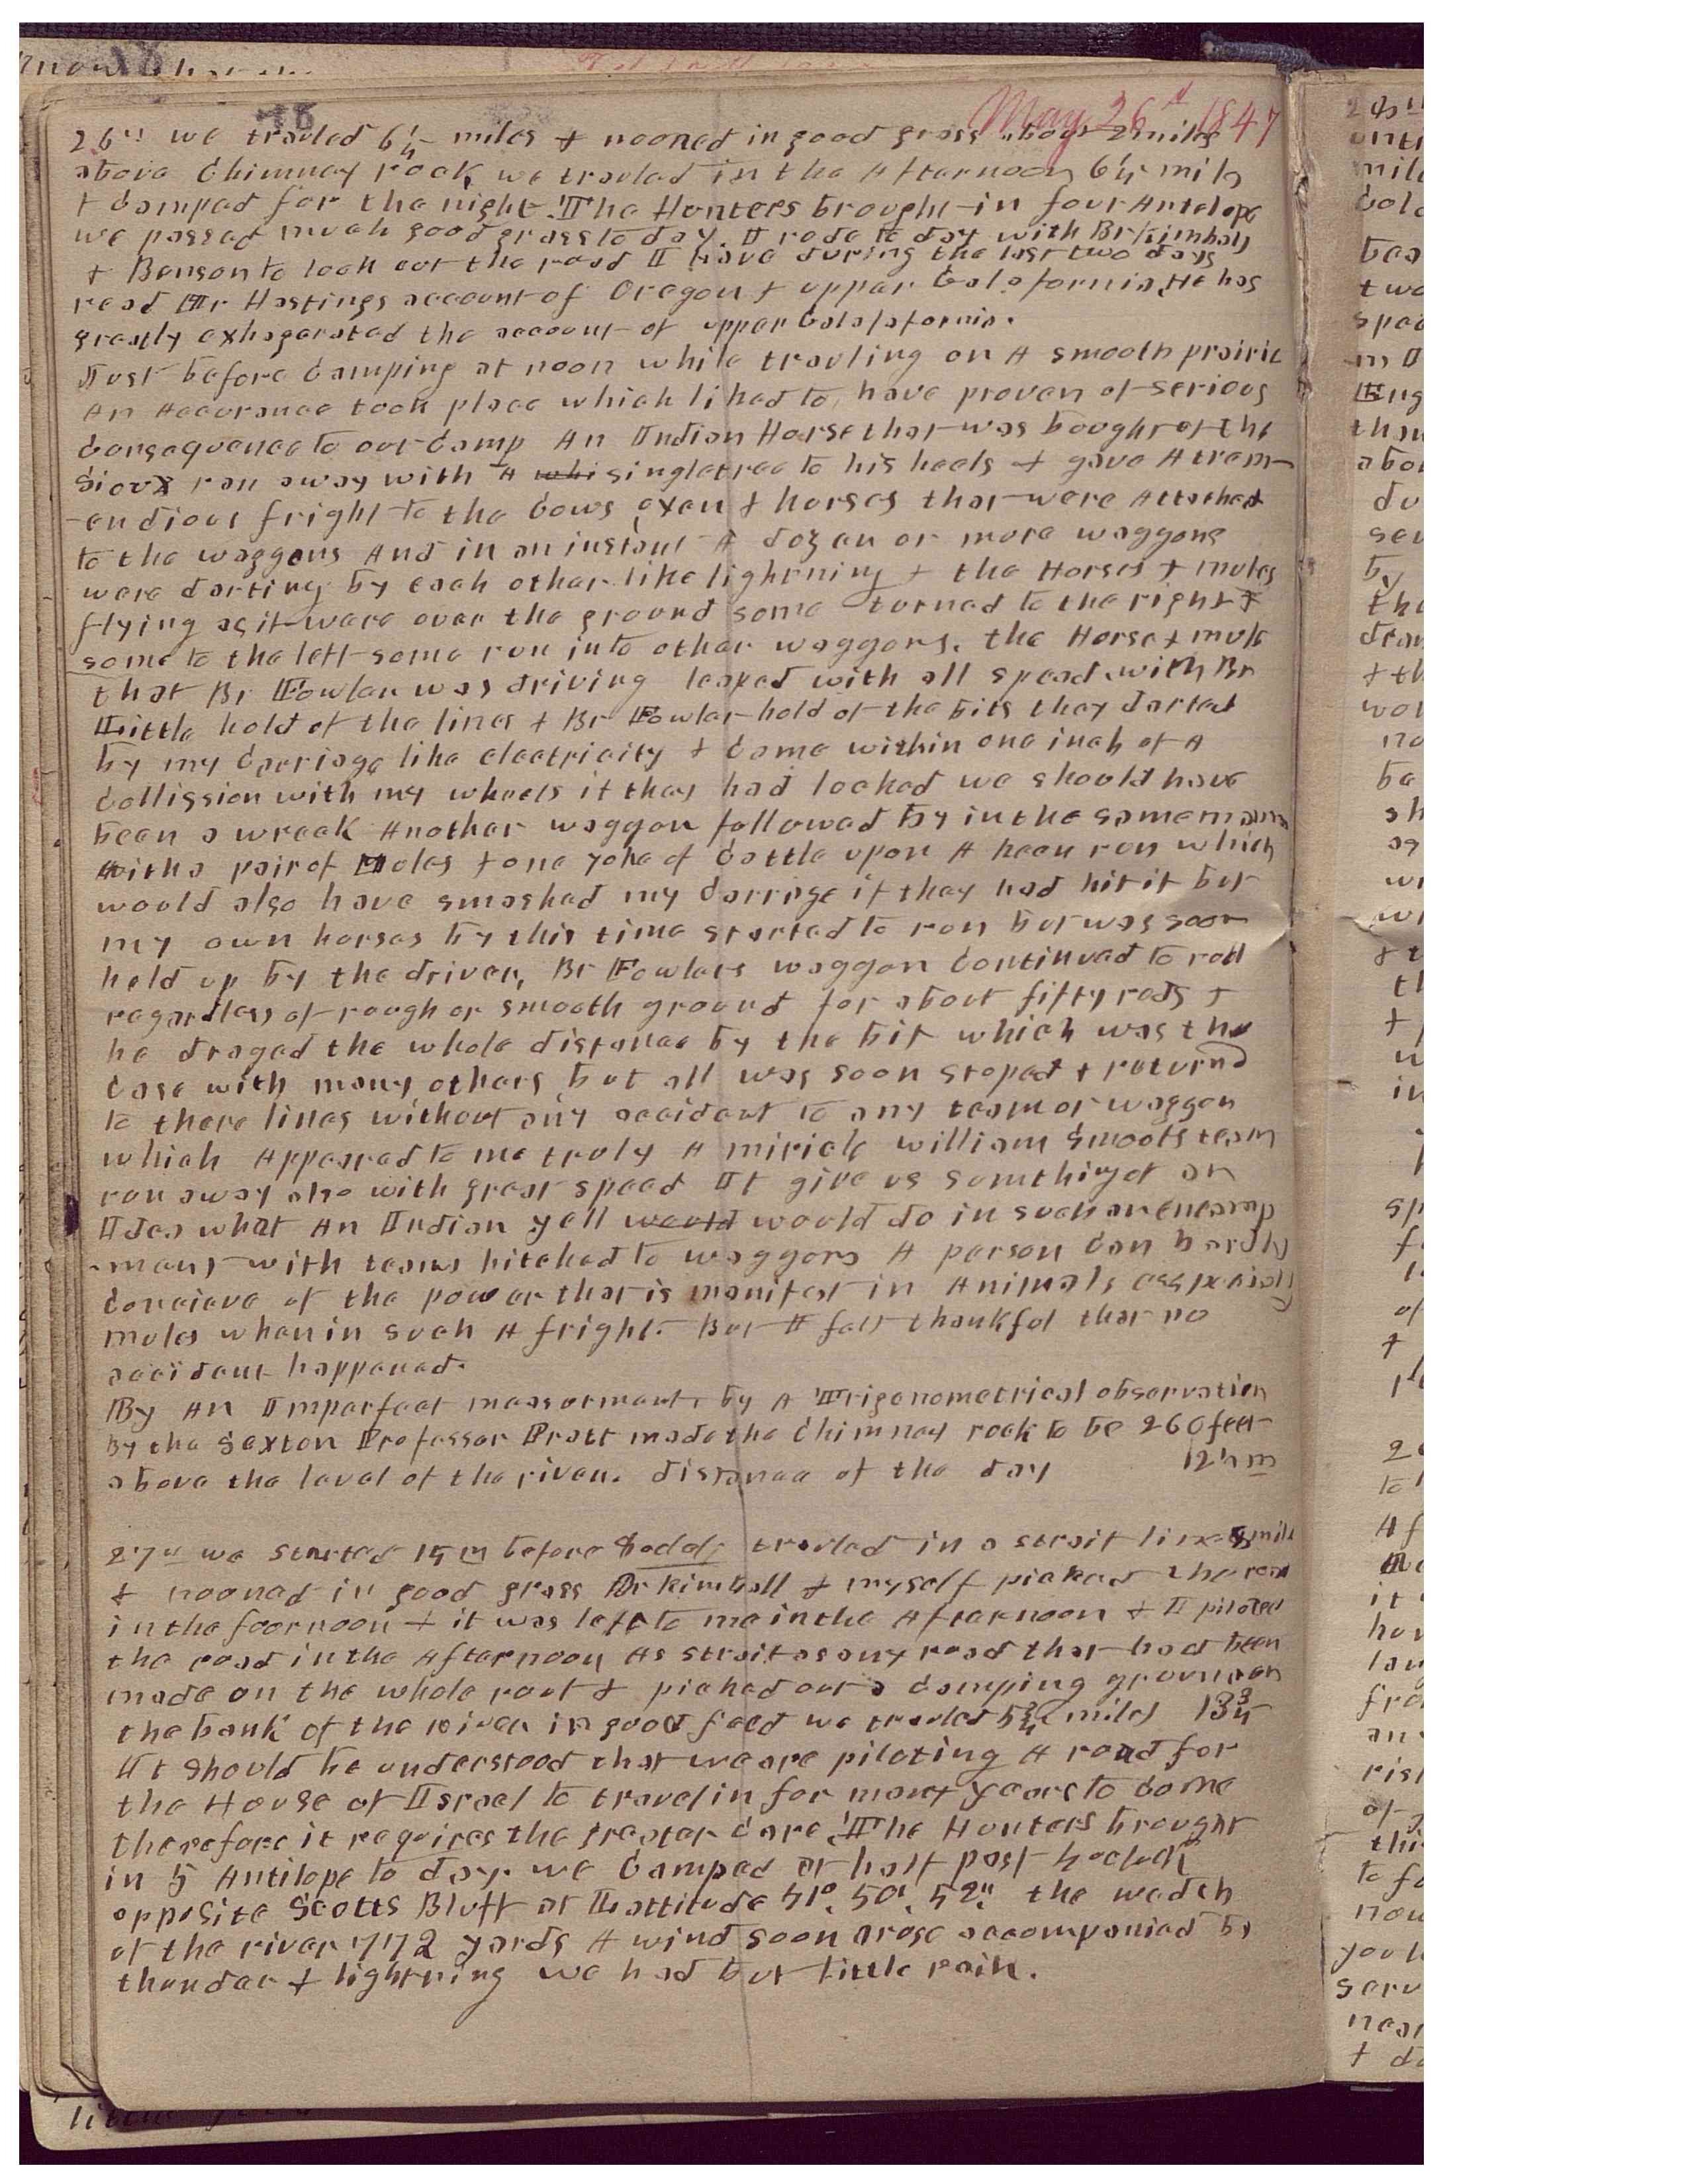 May 26th 1847
26th we traveled 6 1/4 miles & nooned in good grass about 2 miles
above Chimney rock, we traveled in the Afternoon 6 1/4 mils
& Camped for the night. The Hunters brought in four Antelope
we passed much good grass to day. I rode to day with Br Kimball
& Benson to look out the road I have during the last two days
read Mr Hastings account of Oregon & upper Calafornia, He has
greatly exhagerated the account of upper Calafornia.
Just before Camping at noon while travling on A smooth prairie
An Accurance took place which liked to have proven of serious
Consequence to our Camp An Indian Horse that was bought of the
Sioux ran away with A whi singletree to his heels & gave A trem-
-endious fright to the Cows, oxen & horses that were Attached
to the waggons And in an instant A dozen or more waggons
were darting by each other like lightning & the Horses & mules
flying as it were over the ground some turned to the right &
some to the left some run into other waggons. the Horse & mule
that Br Fowler was driving leaped with all speed with Br
Little hold of the lines & Br Fowler hold of the bits they darted
by my Carriage like electricity & Came within one inch of A
Collission with my wheels if they had locked we should have
been a wreck Another waggon followed by in the same mann
with a pair of Mules & one yoke of Cattle upon A keen run which
would also have smashed my Carrige if they had hit it but
my own horses by this time started to run but was soon
held up by the driver, Br Fowlers waggon Continued to roll
regardless of rough or smooth ground for about fifty rods &
he draged the whole distance by the bit which was the
Case with many others but all was soon stoped & returnd
to there lines without any accident to any team or waggon
which Appeared to me truly A miricle William Smoots team
ran away also with great speed It give us somthing of an
Idea what An Indian yell would would do in such an encamp
-ment with teams hitched to waggons A person Can hardly
Concieve of the power that is manifest in Animals esspecialy
mules when in such A fright. But I felt thankful that no
accident happened.
By An Imperfect measurment, by A Trigonometrical observation
By the Sexton Professor Pratt made the Chimney rock to be 260 feet
above the level of the river. distance of the day 12 1/2 m
27th we started 15 m before 8 oclok traveled in a strait line 8 mile
& nooned in good grass Br Kimball & myself picked the road
in the foornoon & it was left to me in the Afternoon & I piloted
the road in the Afternoon As strait as any road that had been
made on the whole rout & picked out a Camping ground on
the bank of the river in good feed we traveled 5 3/4 miles 13 3/4
It should be understood that we are piloting A road for
the House of Israel to travel in for many years to Come
therefore it requires the greater Care, The Hunters brought
in 5 Antilope to day. we Camped at half past 4 oclock
opposite Scotts Bluff at Lattitude 41°. 50'. 52". the wedth
of the river 772 yards A wind soon arose accompanied by
thunder & lightning we had but little rain.